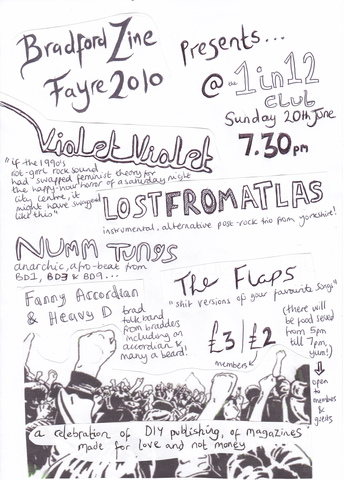 Bradford Zine
Fayre 2010
Presents...
@ 1in12
CLUB
Sunday 20th June
7.30pm
Violet Violet
"if the 1990's
riot-grrl rock sound
had swapped feminist theory for
the happy-hour horror of a saturday night
city centre, it
might have swayed
like this"
LOSTFROMATLAS
instrumental, alternative post-rock trio from yorkshire!
NUMM TUNGS
anarchic, afro-beat from
BD1, BD3 & BD9...
Fanny Accordian
& Heavy D
folk band
from bradders
including an
accordian &
many a beard!
The Flaps
"shit versions of your favourite songs"
£3 | £2
members
(there will
be food served
from 5pm
till 7pm,
yum!)
open
to
members
&
guests
a celebration of DIY publishing, of magazines
made for love and not money